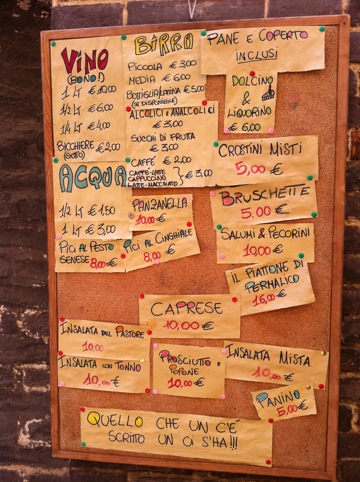 VINO
(BONO!)
1 LT € 10,00
1/2 LT € 6,00
1/4 LT € 4,00
BICCHIERE € 2,00
(GOTTO)
ACQUA
1/2 LT € 1,50
1 LT € 3,00
BIRRA
PICCOLA € 3,00
MEDIA € 6,00
BOTTIGLIA LATTINA € 5,00
(SE DISPONIBILE)
ALCOLICI E ANALCOLICI
€ 3,00
SUCCHI DI FRUTTA
€ 3,00
CAFFÈ € 2,00
CAFFÈ-LATTE
CAPPUCCINO } € 3,00
LATTE-MACCHIATO
PANE E COPERTO
INCLUSI
DOLCINO
&
LIQUORINO
€ 6,00
CROSTINI MISTI
5,00€
PANZANELLA
10,00€
BRUSCHETTE
5.00€
SALUMI & PECORINI
10,00€
PICI AL PESTO
SENESE 8,00€
PICI AL CINGHIALE
8,00€
IL PIATTONE DI
PERMALICO
16,00€
CAPRESE
10,00€
INSALATA DEL PASTORE
10,00
INSALATA CON TONNO
10,00€
PROSCIUTTO E
POPONE
10,00€
INSALATA MISTA
10,00€
PANINO
5,00€
QUELLO CHE UN C'È
SCRITTO UN CI S'HA!!!